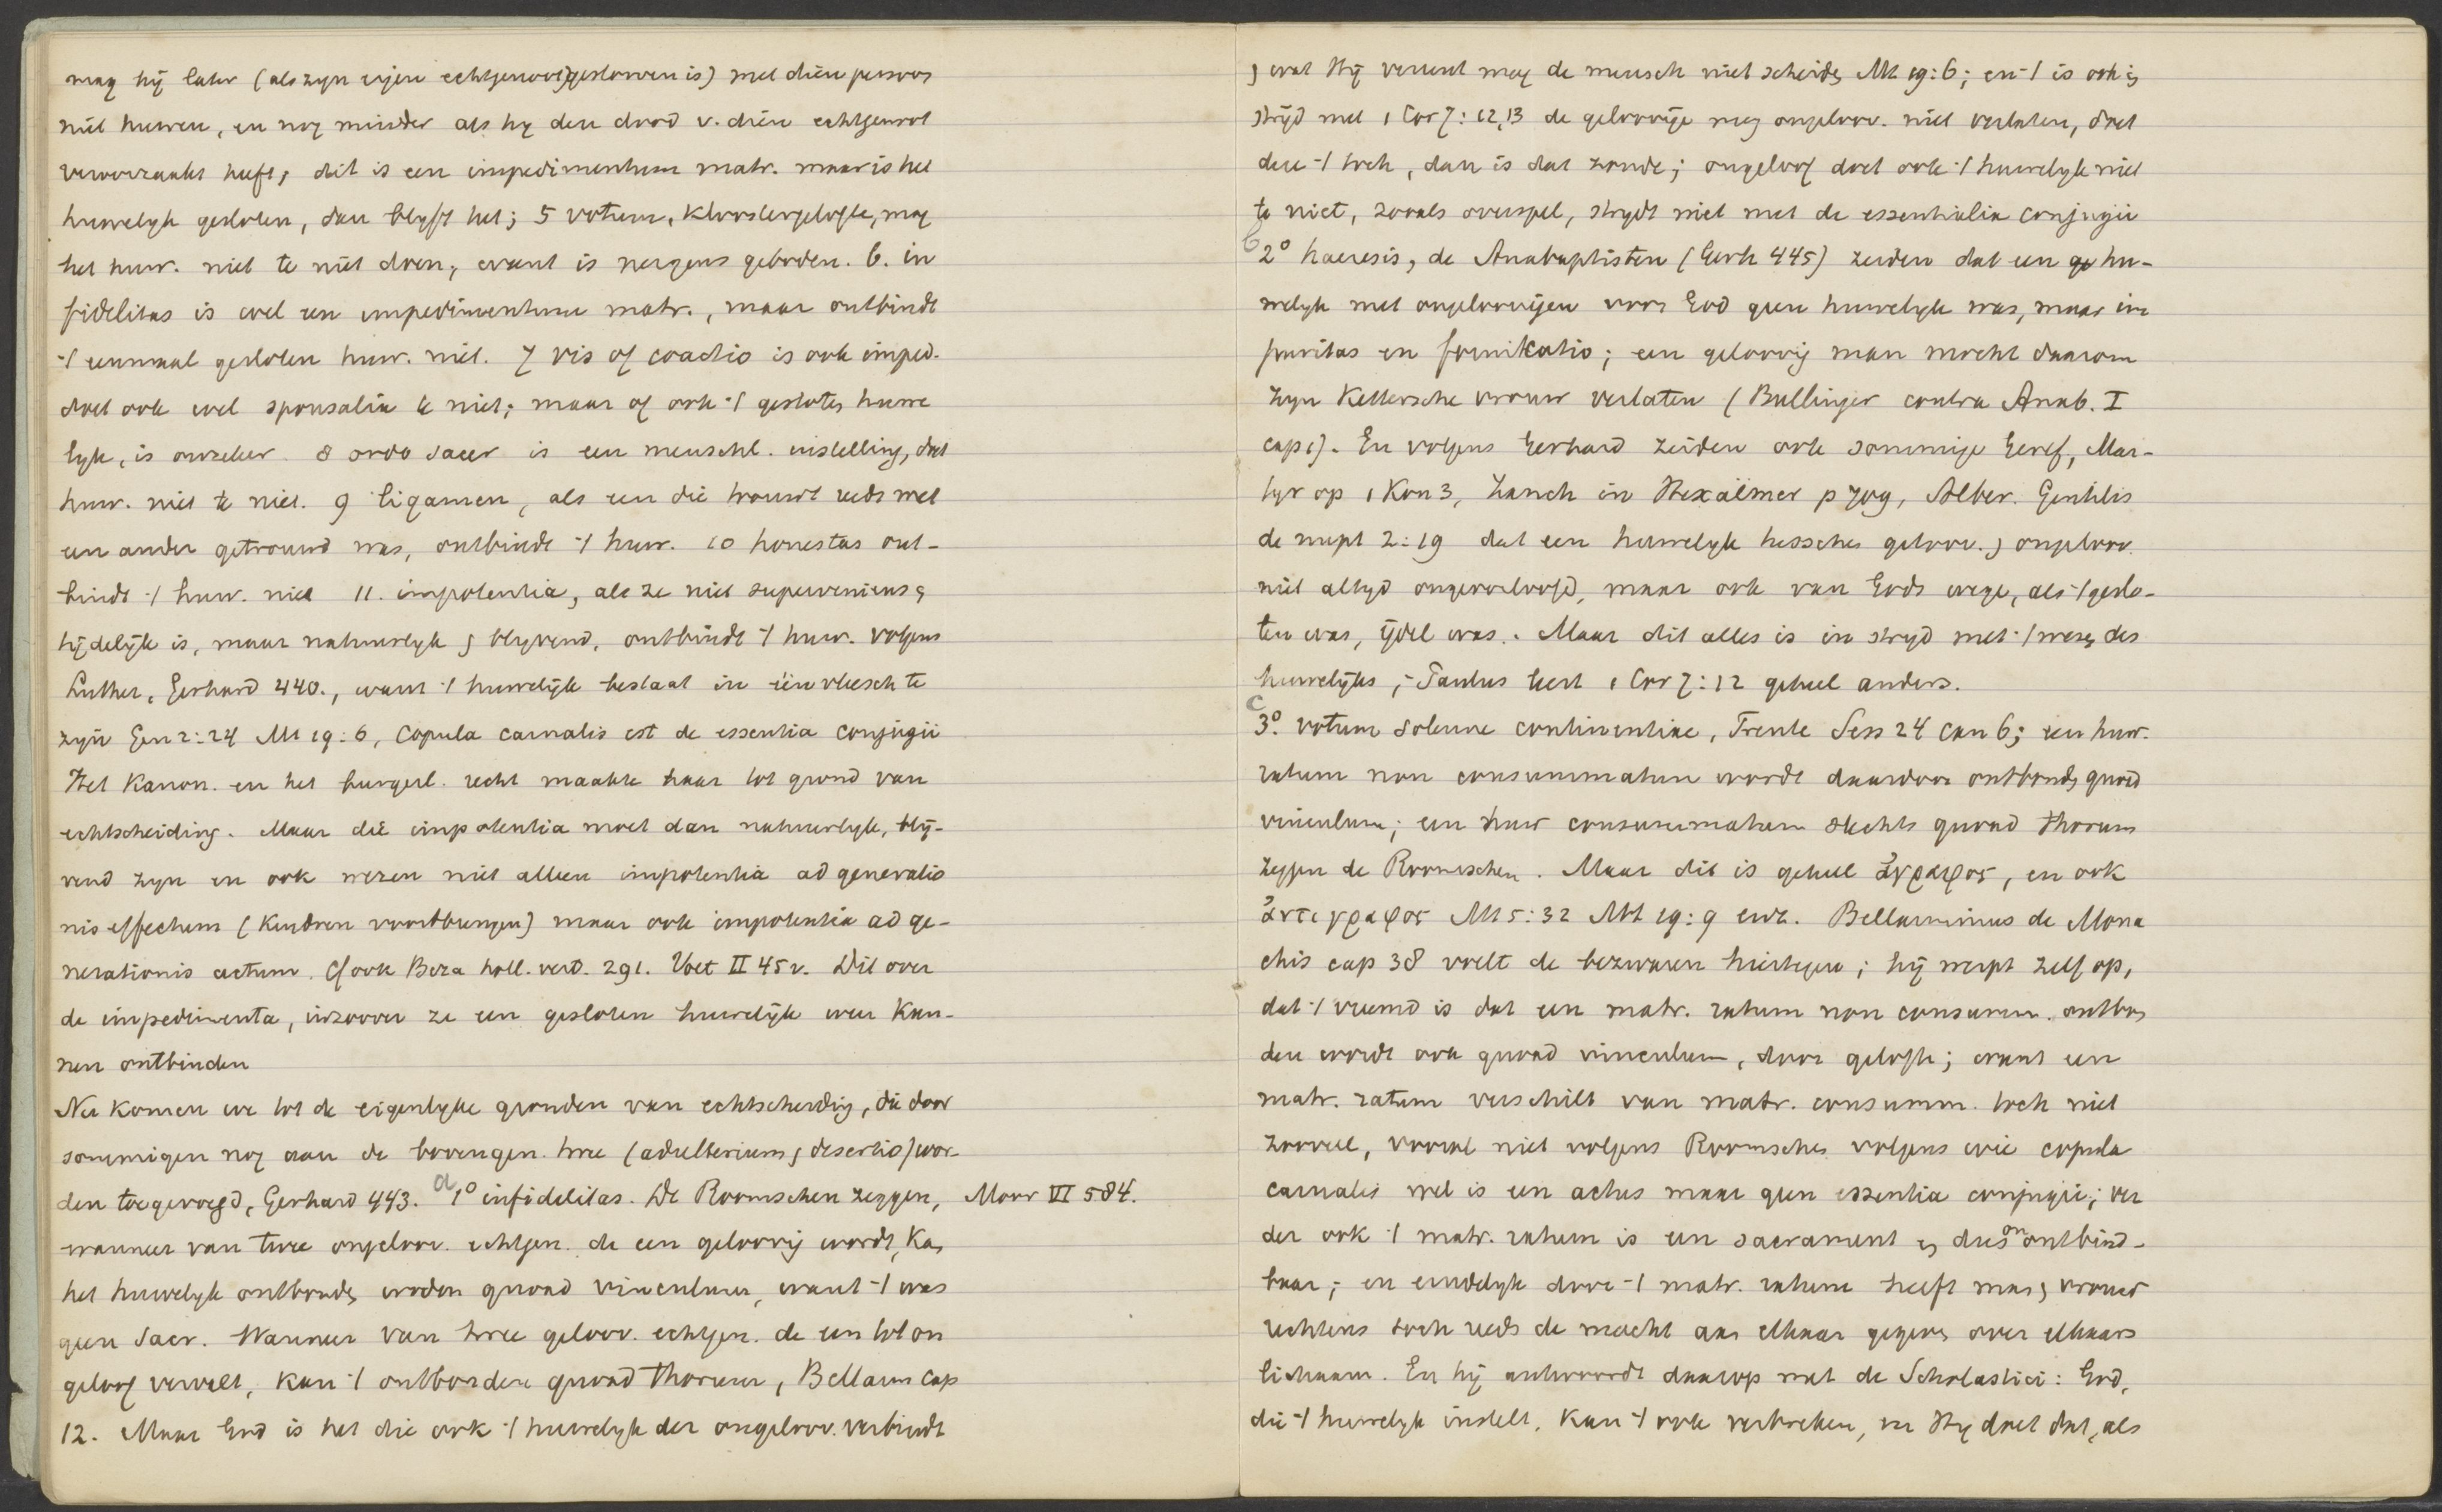 mag hij later (als zyn eigen echtgenoot gestorven is) met dien persoon
niet huwen, en nog minder als hy den dood v. dien echtgenoot
veroorzaakt heeft; dit is een impedimentum matr. maar is het
huwelyk gesloten, dan blyft het; 5 votum, kloostergelofte, mag
het huw. niet te niet doen, want is nergens geboden. 6. in
fidelitas is wel een impedimentum matr., maar ontbindt
't eenmaal gesloten huw. niet. 7 vis of coactio is ook imped.
doet ook wel sponsalia te niet; maar of ook 't gesloten huwe
lyk, is onzeker. 8 ordo sacer is een menschl. instelling, doet
huw. niet te niet. 9 ligamen, als een die trouwt reeds met
een ander getrouwd was, ontbindt 't huw. 10 honestas ont-
bindt 't huw. niet 11. impotentia, als ze niet superveniens en
tijdelijk is, maar natuurlyk en blyvend, ontbindt 't huw. volgens
Luther, Gerhard 440., want 't huwelijk bestaat in één vleesch te
zyn Gen 2:24 Mt 19:6, copula carnalis est de essentia conjugii
Het Kanon. en het burgerl. recht maakte haar tot grond van
echtscheiding. Maar die impotentia moet dan natuurlyk, bly-
vend zyn en ook wezen niet alleen impotentia ad generatio
nis effectum (kindren voortbrengen) maar ook impotentia ad ge-
nerationis actum. Cf ook Beza holl. vert. 291. Voet II 45v. Dit over
de impedimenta, inzoover ze een gesloten huwelijk weer kun-
nen ontbinden
Nu komen we tot de eigenlyke gronden van echtscheiding, die door
sommigen nog aan de bovengen. twee (adulterium en desertio) wor-
den toegevoegd, Gerhard 443. a 1° infidelitas. De Roomschen zeggen, Moor VI 584.
wanneer van twee ongeloov. echtgen. de een geloovig wordt, kan
het huwelyk ontbonden worden quoad vinculum, want 't was
geen sacr. Wanneer van twee geloov. echtgen. de een tot on
geloof vervalt, kan 't ontbonden quoad thorum, Bellarm cap
12. Maar God is het die ook 't huwelyk der ongeloov. verbindt
en wat Hij vereent mag de mensch niet scheiden Mt 19:6; en 't is ook in
stryd met 1 Cor 7:12,13 de geloovige mag ongeloov. niet verlaten, doet
deze 't toch, dan is dat zonde; ongeloof doet ook 't huwelyk niet
te niet, zooals overspel, strydt niet met de essentialia conjugii
b 2° haeresis, de Anabaptisten (Gerh 445) zeiden dat een hu-
welyk met ongeloovigen voor God geen huwelyk was, maar im
puritas en fornikatio; een geloovig man mocht daarom
zyn kettersche vrouw verlaten (Bullinger contra Anab. I
cap 1). En volgens Gerhard zeiden ook sommige Geref, Mar-
tyr op 1 Kon 3, Zanch in Hexaëmer p 709, Alber. Gentilis
de nupt 2:19 dat een huwelyk tusschen geloov. en ongeloov.
niet altyd ongeoorloofd, maar ook van Gods wege, als 't geslo-
ten was, ijdel was. Maar dit alles is in stryd met 't wezen des
huwelijks; Paulus leert 1 Cor 7:12 geheel anders.
c 3°. votum solenne continentiae, Trente Sess 24 can 6; een huw.
ratum non consummatum wordt daardoor ontbonden quoad
vinculum; een huw consummatum slechts quoad thorum
zeggen de Roomschen. Maar dit is geheel ἄγραφος, en ook
ἀντιγραφος Mt 5:32 Mt 19:9 enz. Bellarminus de Mona
chis cap 38 voelt de bezwaren hiertegen; hij werpt zelf op,
dat 't vreemd is dat een matr. ratum non consumm. ontbon
den wordt ook quoad vinculum, door gelofte; want een
matr. ratum verschilt van matr. consumm. toch niet
zooveel, vooral niet volgens Roomschen volgens wie copula
carnalis wel is een actus maar geen essentia conjugii; ver
der ook 't matr. ratum is een sacrament en dus onontbind-
baar; en eindelyk door 't matr. ratum heeft man en vrouw
rechtens toch reeds de macht aan elkaar gegeven over elkaars
lichaam. En hij antwoordt daarop met de Scholastici: God,
die 't huwelyk instelt, kan 't ook verbreken, en Hy doet dat, als